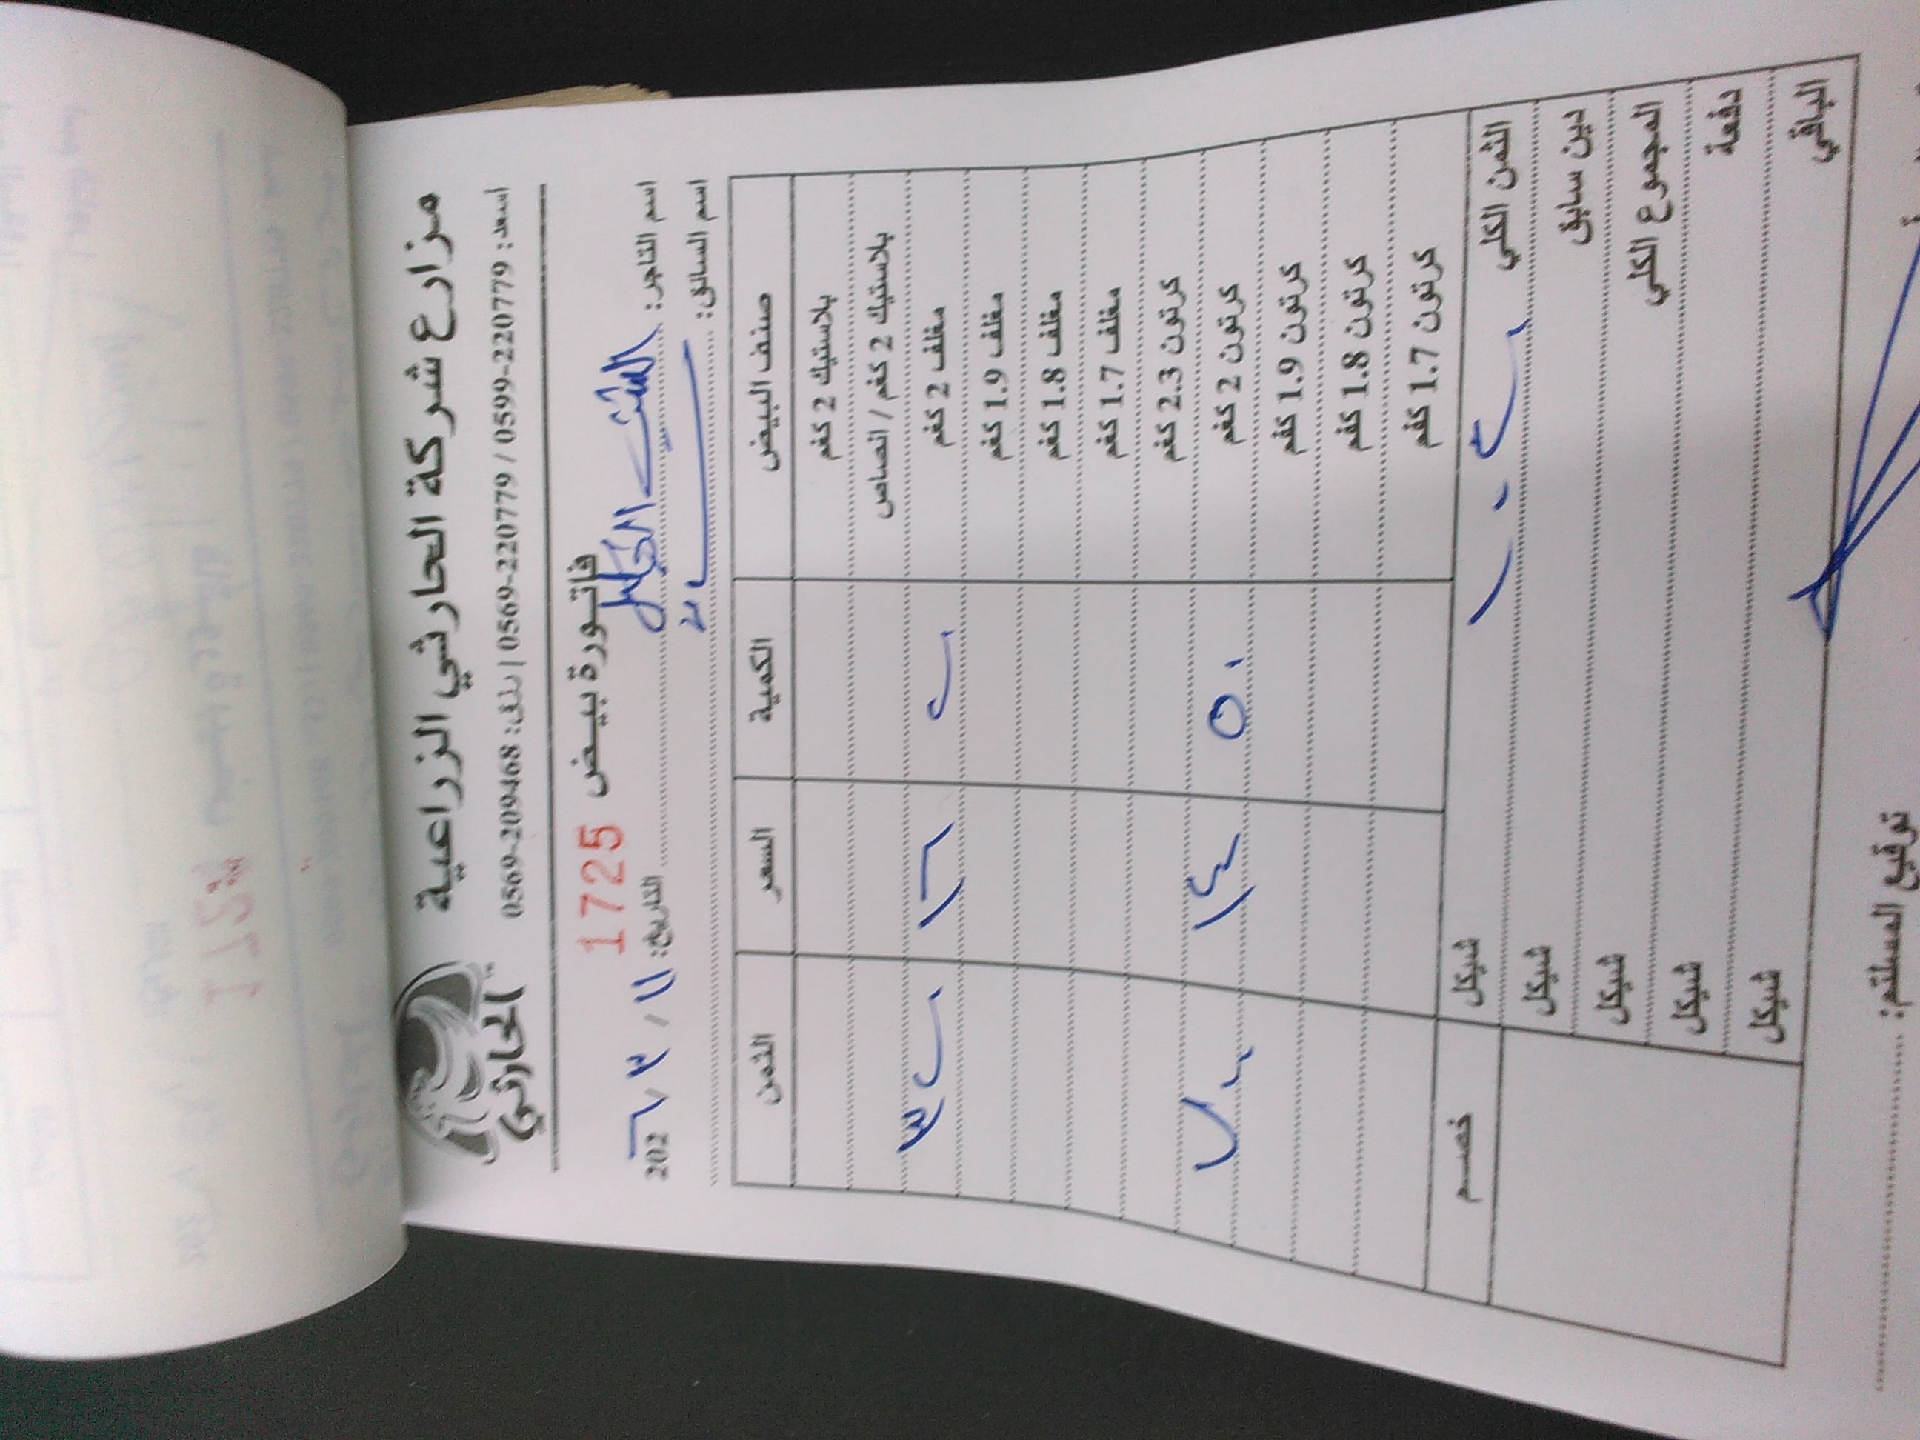 مزارع شركة الحارثي الزراعية
اسعد: 0599-220779 / 0569-220779 | بلال: 0569-209468
الحارثي
فاتورة بيض 1725
اسم التاجر: التاريخ: ١١ / ٣ / 202٦
اسم السائق:
صنف البيض الكمية السعر الثمن
بلاستيك 2 كغم
بلاستيك 2 كغم / انصاص
مغلف 2 كغم ٢٠ ١٦ ٣٢٠
مغلف 1.9 كغم
مغلف 1.8 كغم
مغلف 1.7 كغم
كرتون 2.3 كغم
كرتون 2 كغم ٥٠ ١٤ ٧٠٠
كرتون 1.9 كغم
كرتون 1.8 كغم
كرتون 1.7 كغم
الثمن الكلي ١٠٢٠ شيكل خصم
دين سابق شيكل
المجموع الكلي شيكل
دفعة شيكل
الباقي شيكل
توقيع المستلم: